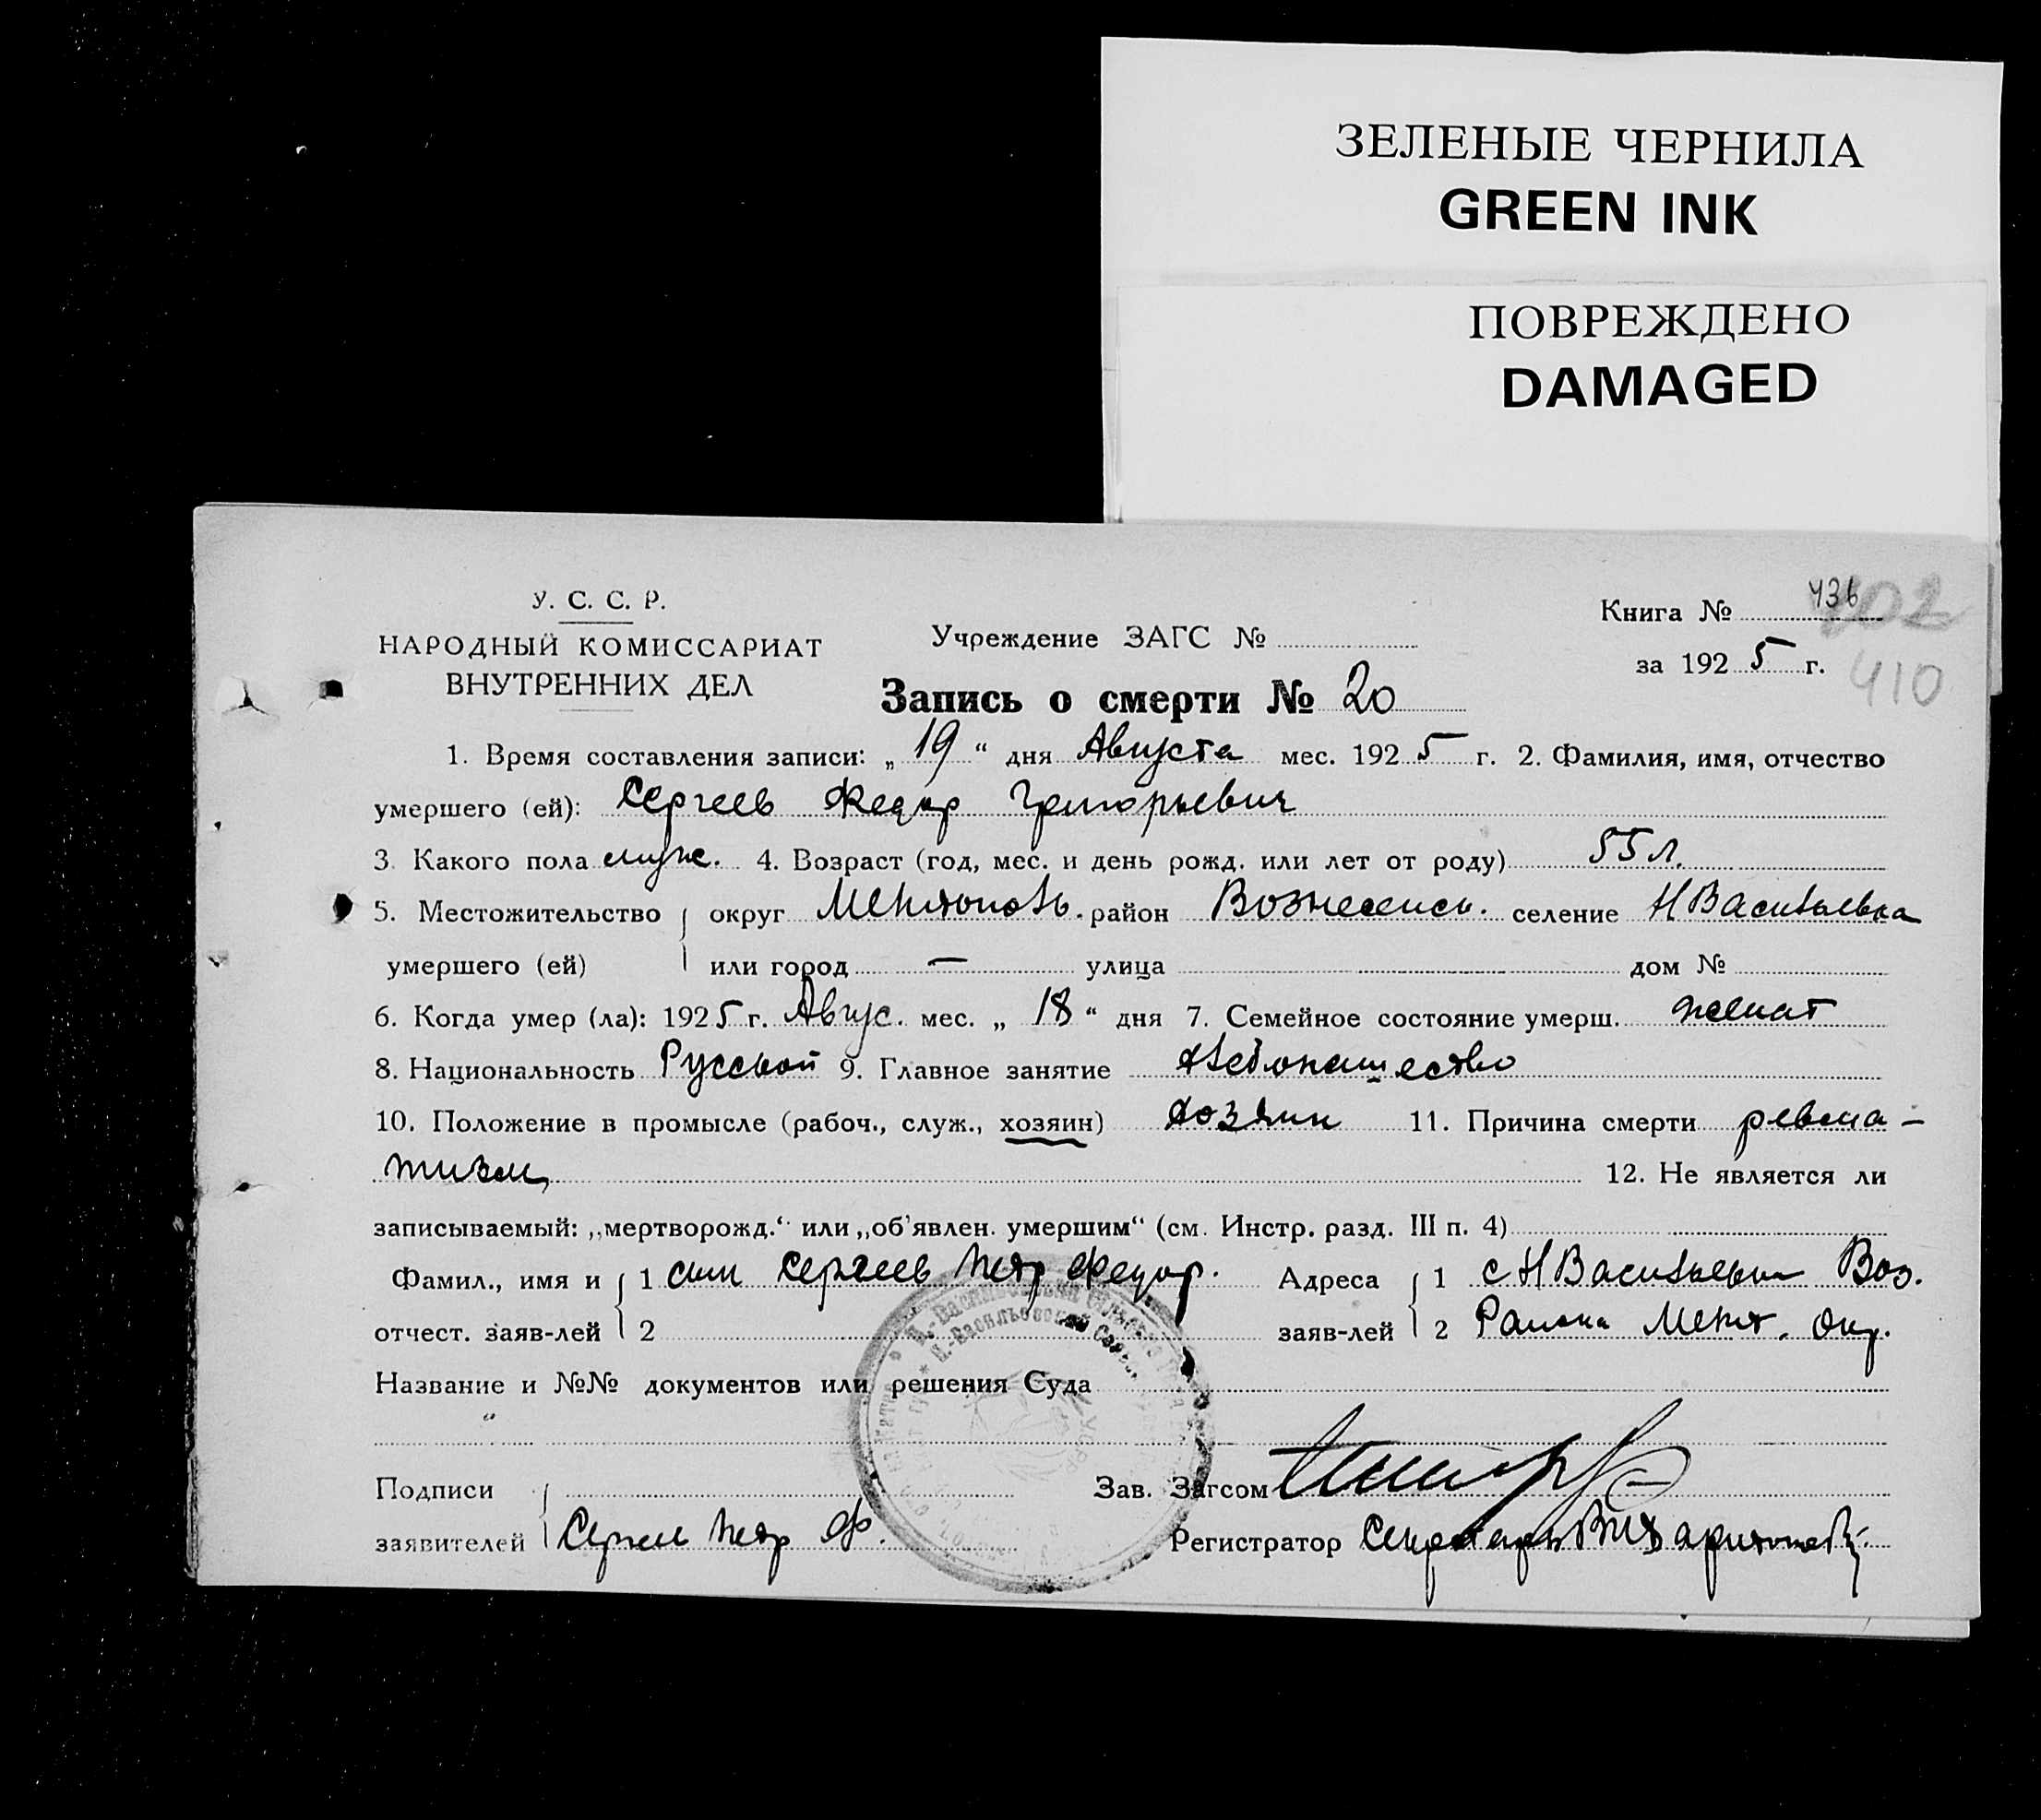 ЗЕЛЕНЫЕ ЧЕРНИЛА
GREEN INK
ПОВРЕЖДЕНО
DAMAGED
У. С. С. Р.
НАРОДНЫЙ КОМИССАРИАТ
ВНУТРЕННИХ ДЕЛ
Учреждение ЗАГС №
Книга № 436
402
за 1925 г.
410
Запись о смерти № 20
1. Время составления записи: „19“ дня Августа мес. 1925 г. 2. Фамилия, имя, отчество
умершего (ей): Сергеев Федор Григорьевич
3. Какого пола муж. 4. Возраст (год, мес. и день рожд. или лет от роду) 55 л.
5. Местожительство округ Мелитополь. район Вознесенск. селение Н Васильевка
умершего (ей) или город — улица дом №
6. Когда умер (ла): 1925 г. Авгус. мес. „18“ дня 7. Семейное состояние умерш. женат
8. Национальность Русской 9. Главное занятие хлебопашество
10. Положение в промысле (рабоч., служ., хозяин) хозяин 11. Причина смерти ревма-
тизм 12. Не является ли
записываемый: „мертворожд.“ или „об'явлен. умершим“ (см. Инстр. разд. III п. 4)
Фамил., имя и 1 сын Сергеев Петр Федор. Адреса 1 с Н Васильевка Воз.
отчест. заяв-лей 2 заяв-лей 2 Района Мелит. Окр.
Название и №№ документов или решения Суда
Подписи Зав. Загсом
заявителей Сергеев Петр Ф. Регистратор Секретарь